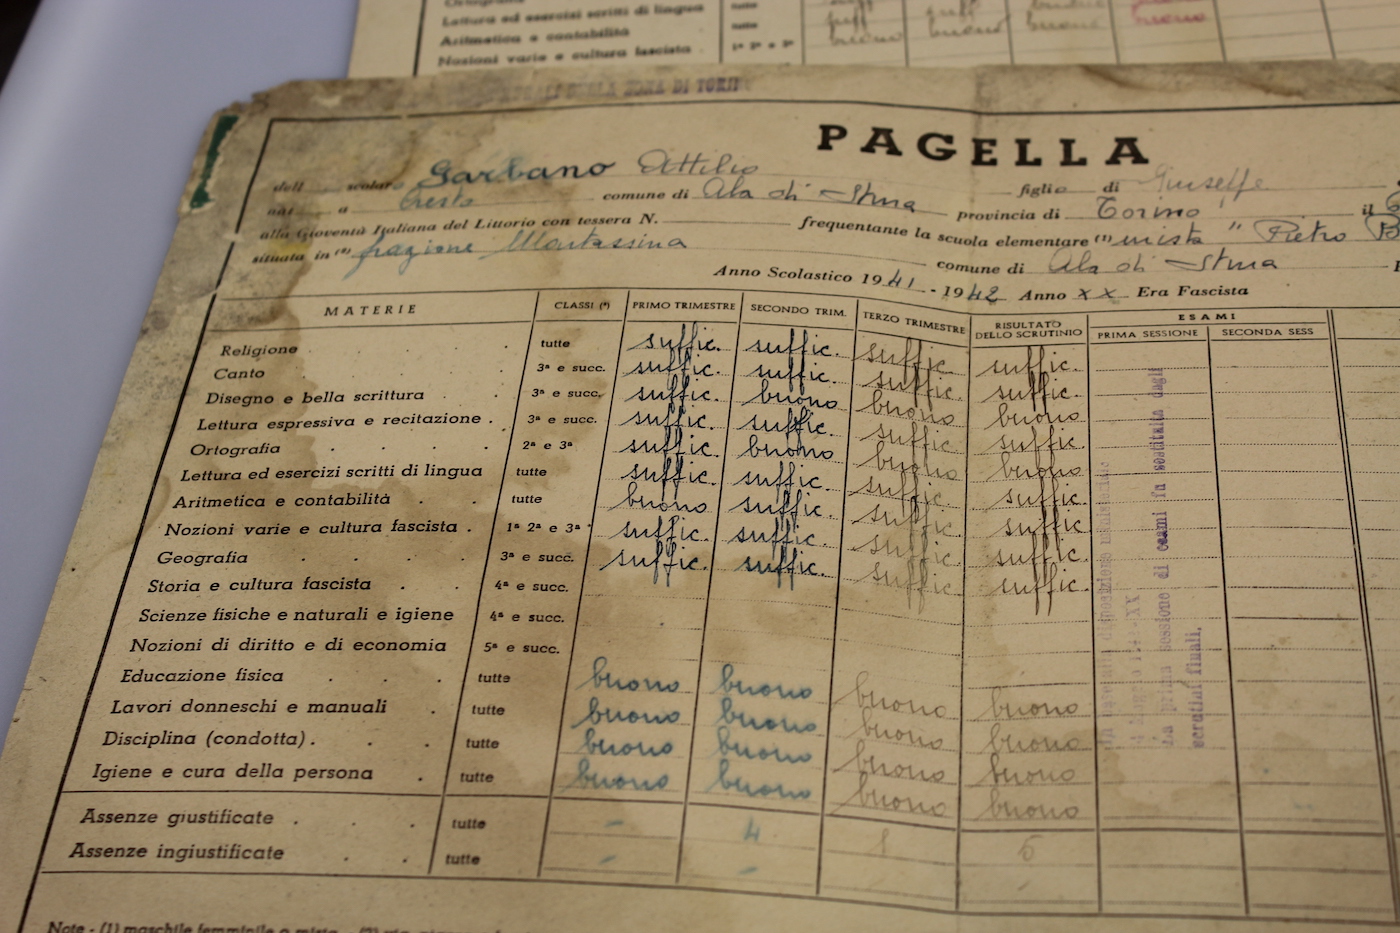 Lettura ed esercizi scritti di lingua tutte suff suff buono buono
Aritmetica e contabilità tutte buono buono buono
Nozioni varie e cultura fascista 1ª 2ª e 3ª
ZONA DI TORINO
PAGELLA
dell scolar Garbano Attilio figlio di Giuseppe
nat a Cresto comune di Ala di Stura provincia di Torino il
alla Gioventù Italiana del Littorio con tessera N. frequentante la scuola elementare (1) mista " Pietro B
situata in (2) frazione Martassina comune di Ala di Stura
Anno Scolastico 1941 - 1942 Anno XX Era Fascista
MATERIE CLASSI (*) PRIMO TRIMESTRE SECONDO TRIM. TERZO TRIMESTRE RISULTATO DELLO SCRUTINIO ESAMI
PRIMA SESSIONE SECONDA SESS
Religione tutte suffic. suffic. suffic. suffic.
Canto 3ª e succ. suffic. suffic. suffic. suffic.
Disegno e bella scrittura 3ª e succ. suffic. buono buono buono
Lettura espressiva e recitazione 3ª e succ. suffic. suffic. suffic. suffic.
Ortografia 2ª e 3ª suffic. buono buono buono
Lettura ed esercizi scritti di lingua tutte suffic. suffic. suffic. suffic.
Aritmetica e contabilità tutte buono suffic. suffic. suffic.
Nozioni varie e cultura fascista 1ª 2ª e 3ª suffic. suffic. suffic. suffic.
Geografia 3ª e succ. suffic. suffic. suffic. suffic.
Storia e cultura fascista 4ª e succ.
Scienze fisiche e naturali e igiene 4ª e succ.
Nozioni di diritto e di economia 5ª e succ.
Educazione fisica tutte buono buono buono buono
Lavori donneschi e manuali tutte buono buono buono buono
Disciplina (condotta) tutte buono buono buono buono
Igiene e cura della persona tutte buono buono buono buono
Assenze giustificate tutte - 4 1 5
Assenze ingiustificate tutte - -
disposizione
la prima sessione di esami fu sostituita dagli
scrutini finali.
Note - (1) maschile femminile o mista